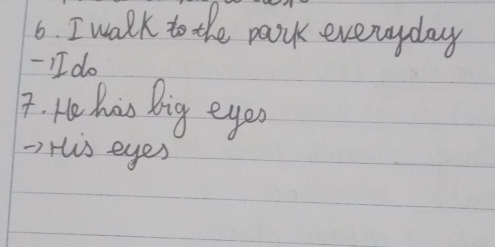 6. I walk to the park everyday
- I do
7. He has big eyes
→ His eyes